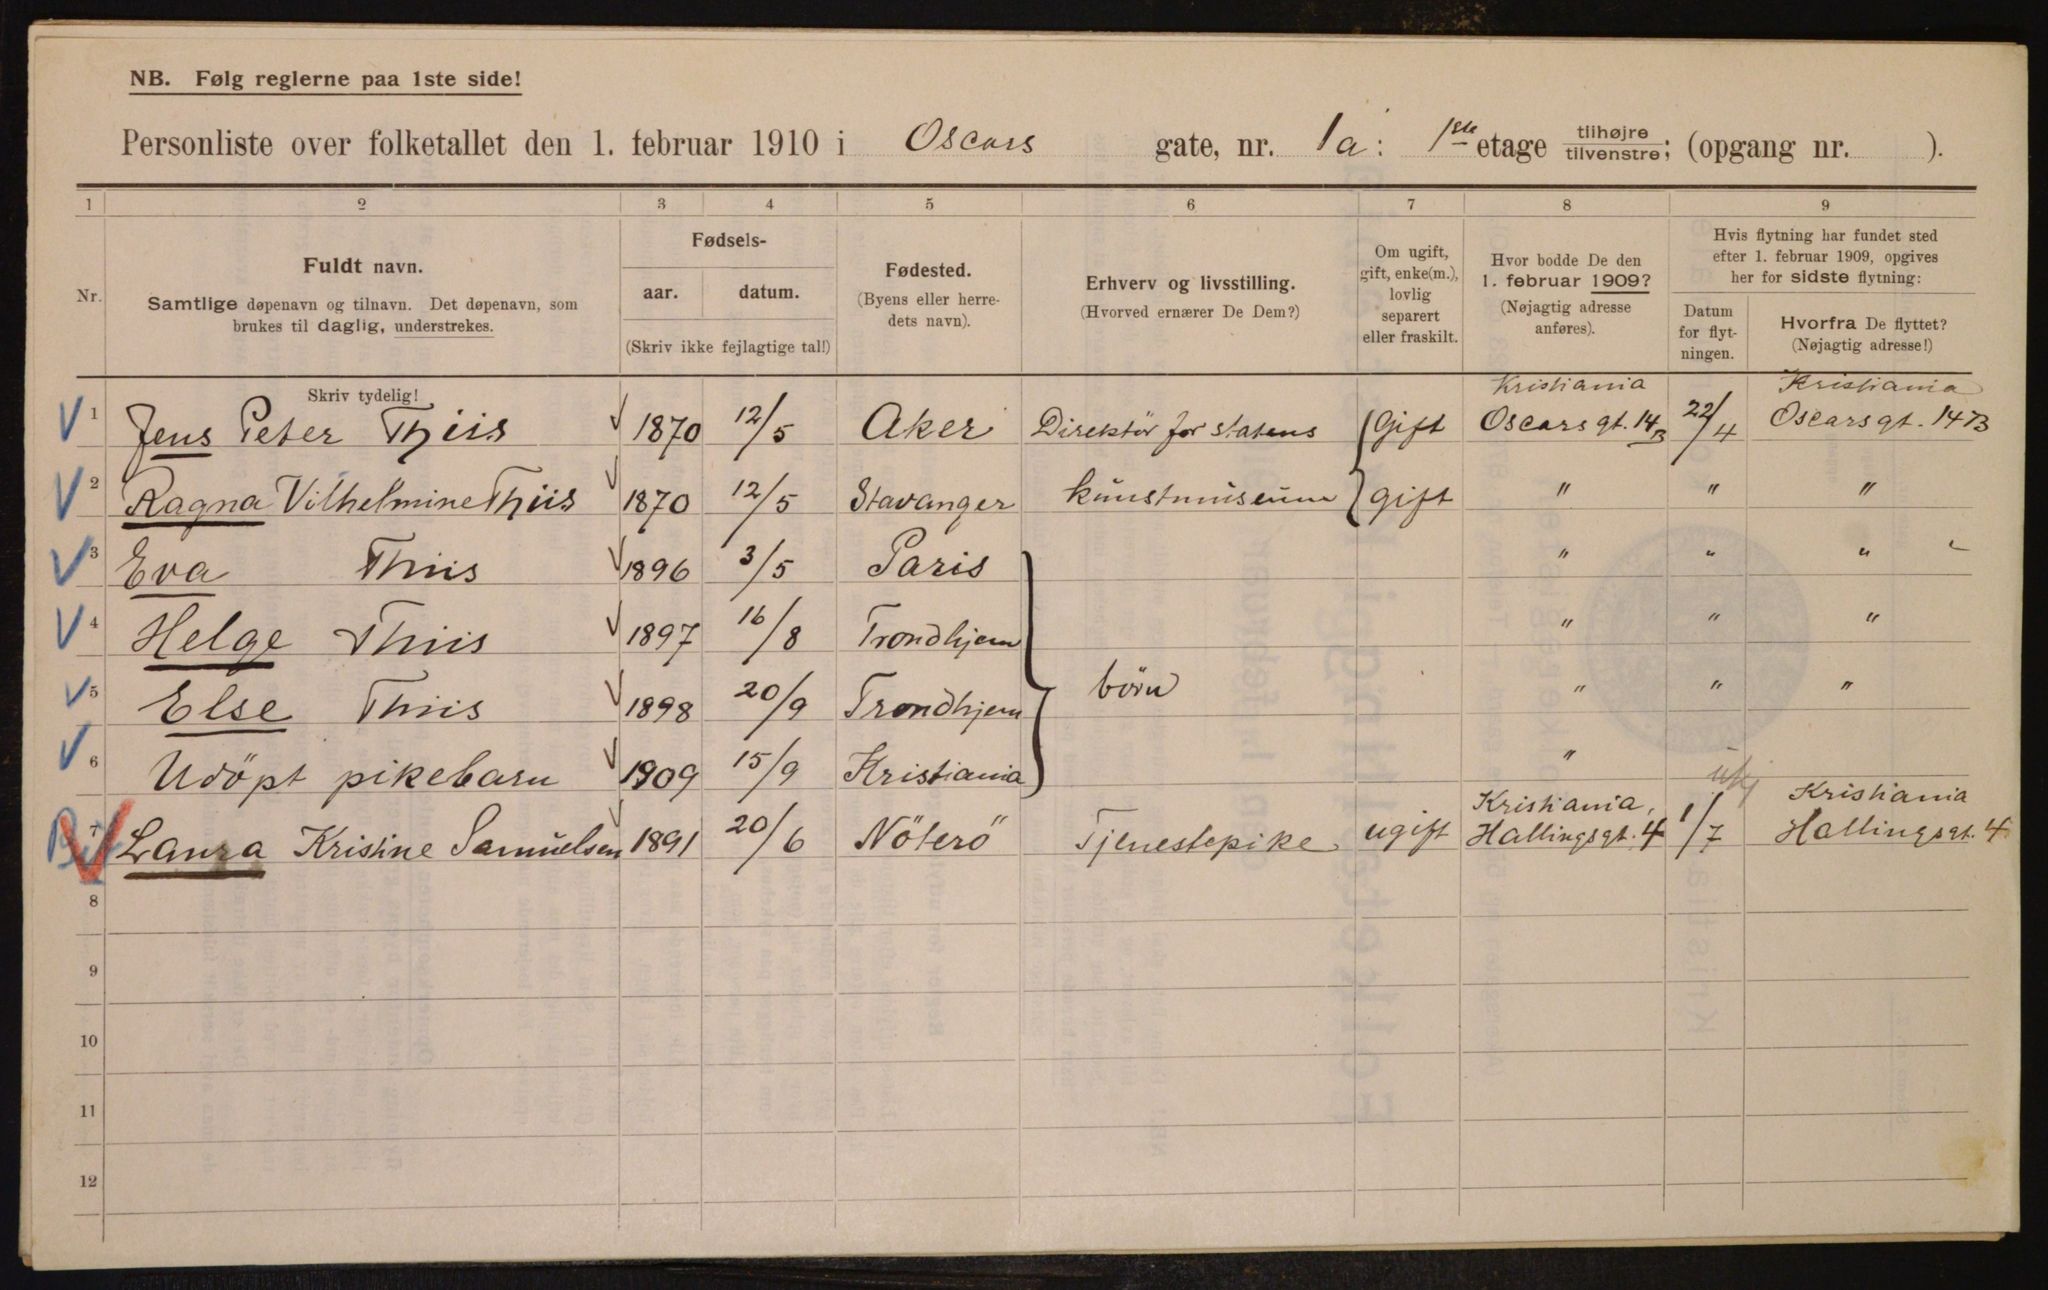 NB. Følg reglerne paa 1ste side!
Personliste over folketallet den 1. februar 1910 i Oscars gate, nr. 1a: 1ste etage tilhøjre tilvenstre; (opgang nr. ).
1 2 3 4 5 6 7 8 9
Nr.
Fuldt navn.
Samtlige døpenavn og tilnavn. Det døpenavn, som
brukes til daglig, understrekes.
Fødsels-
aar. datum.
(Skriv ikke fejlagtige tal!)
Fødested.
(Byens eller herre-
dets navn).
Erhverv og livsstilling.
(Hvorved ernærer De Dem?)
Om ugift,
gift, enke(m.),
lovlig
separert
eller fraskilt.
Hvor bodde De den
1. februar 1909?
(Nøjagtig adresse
anføres).
Hvis flytning har fundet sted
efter 1. februar 1909, opgives
her for sidste flytning:
Datum
for flyt-
ningen.
Hvorfra De flyttet?
(Nøjagtig adresse!)
Skriv tydelig! Kristiania Kristiania
1 Jens Peter Thiis 1870 12/5 Aker Direktör for statens Gift Oscarsgt. 14B 22/4 Oscarsgt. 14B
2 Ragna Vilhelmine Thiis 1870 12/5 Stavanger kunstmuseum gift " " "
3 Eva Thiis 1896 3/5 Paris " " "
4 Helge Thiis 1897 16/8 Trondhjem " " "
5 Else Thiis 1898 20/9 Trondhjem börn " " "
6 Udöpt pikebarn 1909 15/9 Kristiania "
Kristiania, Kristiania
7 Laura Kristine Samuelsen 1891 20/6 Nöterö Tjenestepike ugift Hallingsgt. 4 1/7 Hallingsgt. 4
8
9
10
11
12